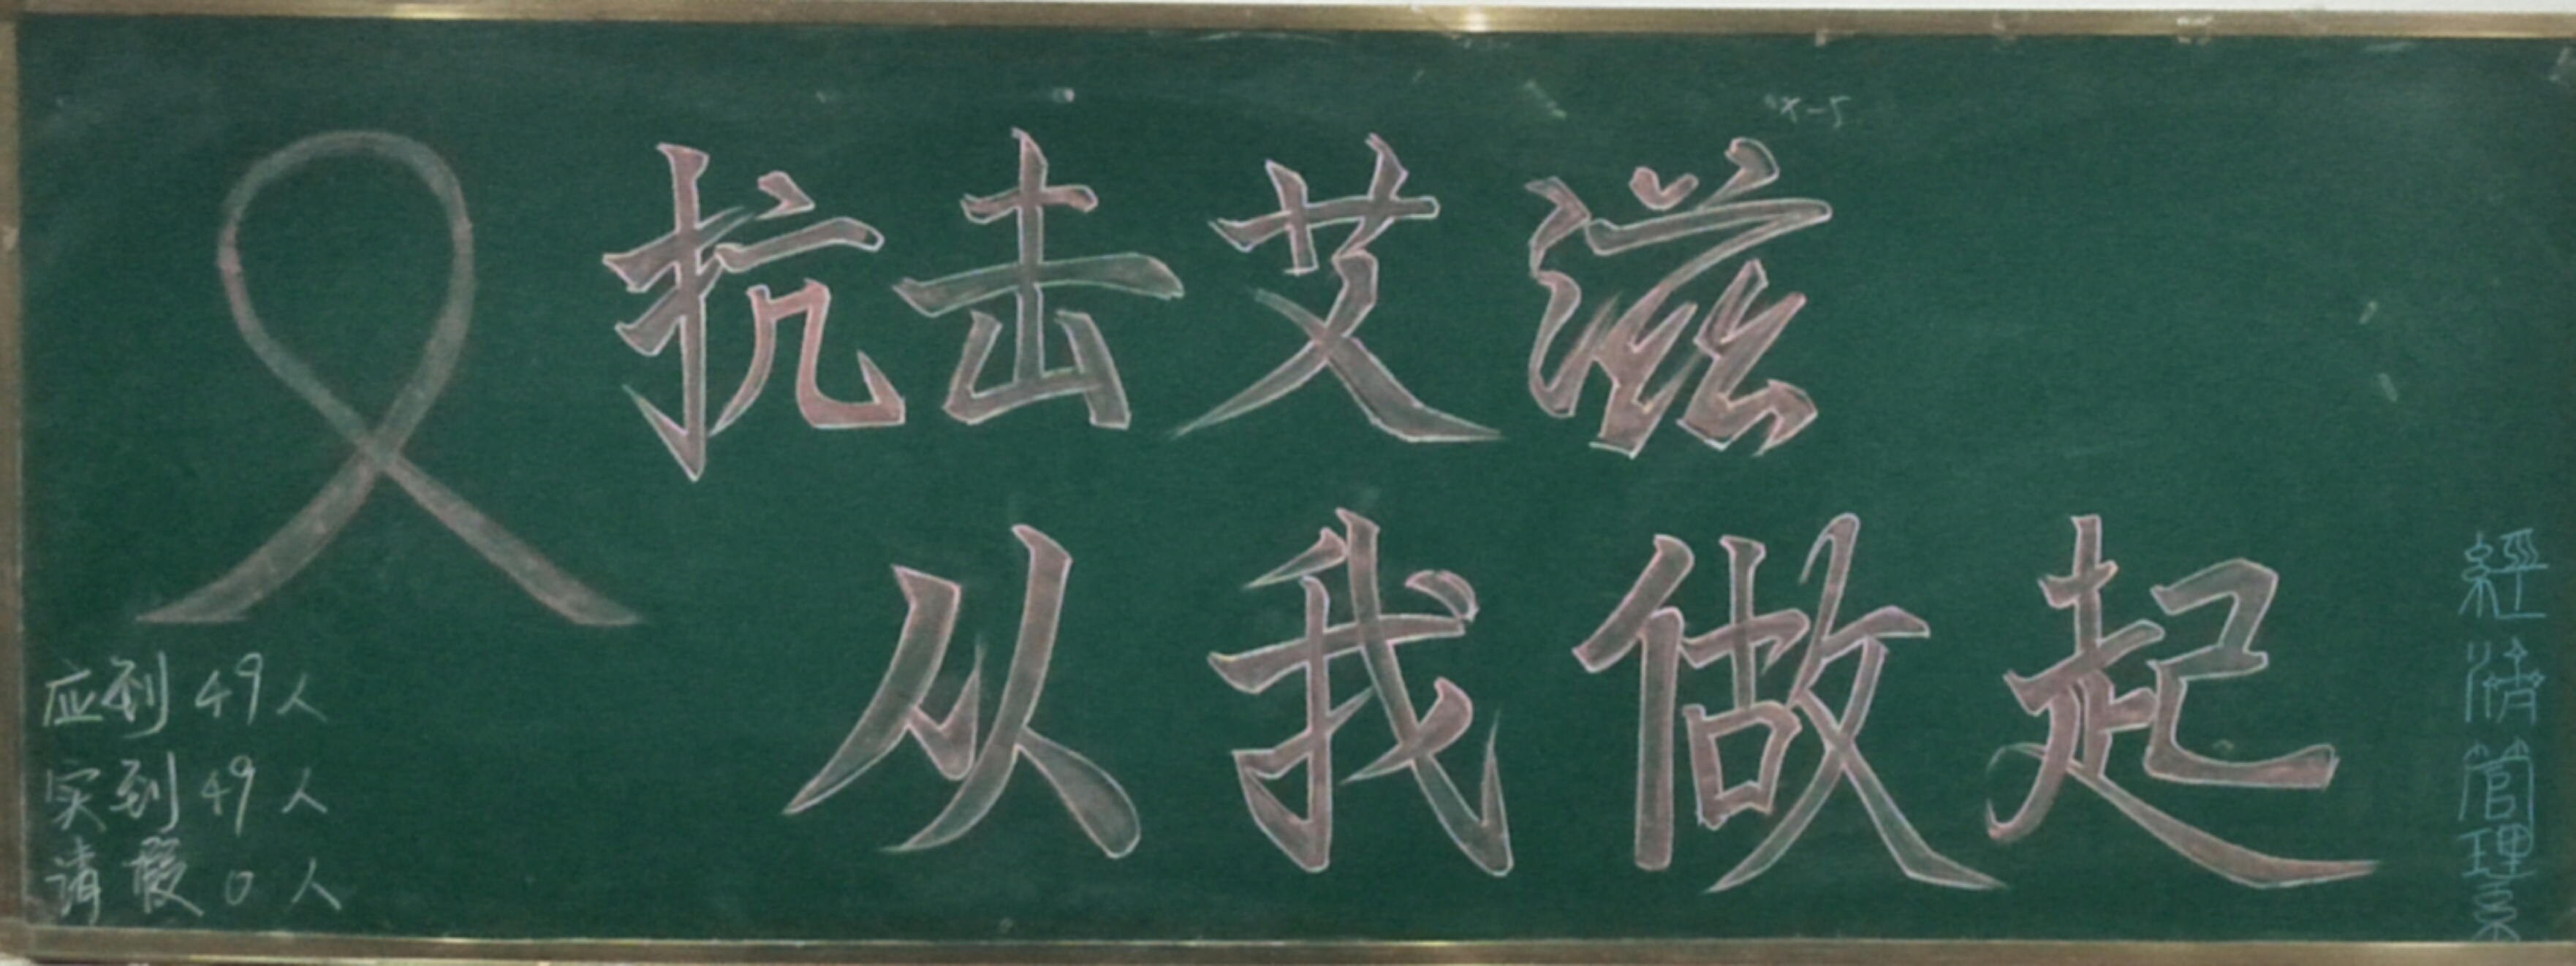 抗击艾滋
从我做起
应到49人
实到49人
请假0人
經济管理系
x-5